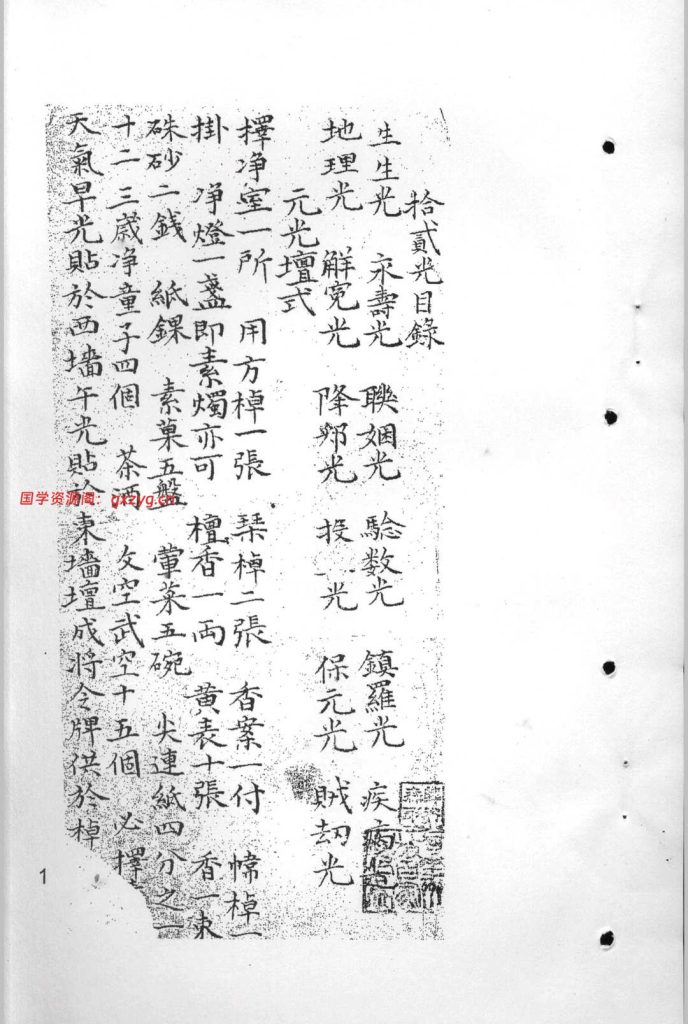 拾貳光目錄
生生光 永壽光 聯姻光 騐数光 鎮羅光 疾病光
地理光 觧寃光 降邪光 投 光 保元光 賊刼光
元光壇式
擇净室一所 用方棹一張 琹棹二張 香案一付 幃棹一
掛 净燈一盞即素燭亦可 檀香一両 黄表十張 香一束
硃砂二銭 紙錁 素菓五盤 葷菜五碗 尖連紙四分之一
十二三歳净童子四個 茶酒 文空武空十五個 必擇
天氣早光貼於西墻午光貼於東墻壇成将令牌供於棹
国学资源阁：gxzyg.cn
1